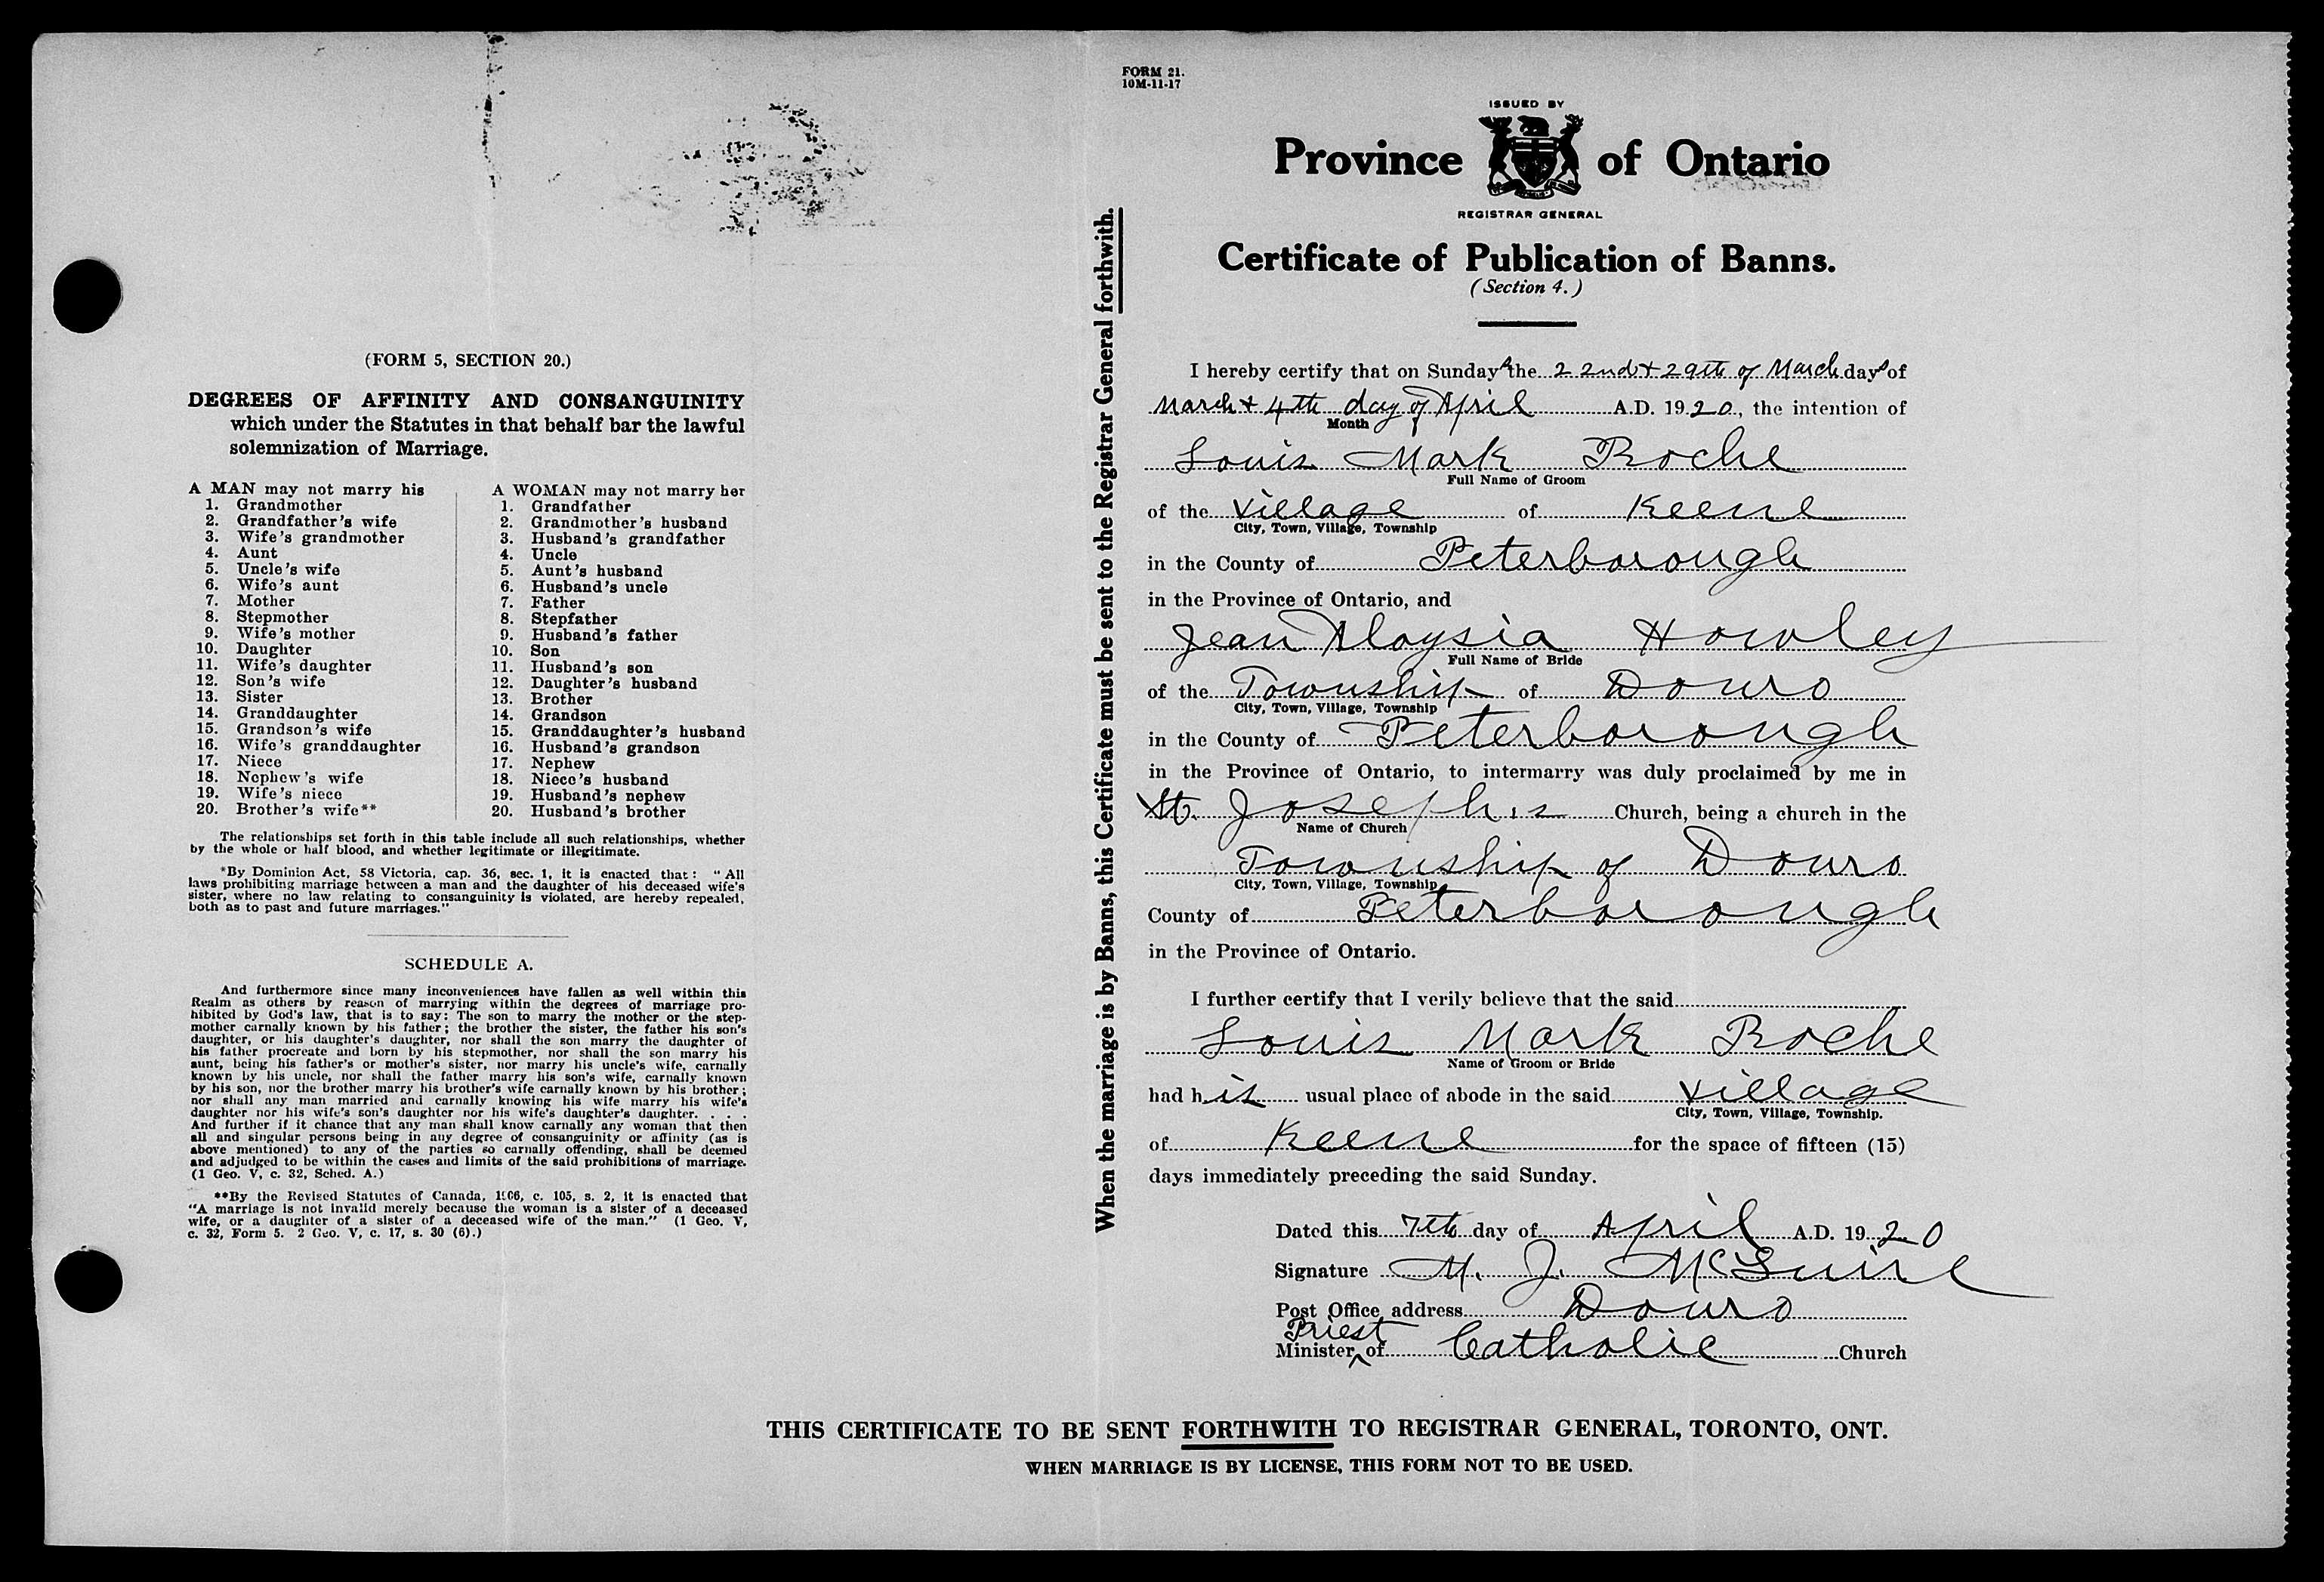 (FORM 5, SECTION 20.)
DEGREES OF AFFINITY AND CONSANGUINITY
which under the Statutes in that behalf bar the lawful
solemnization of Marriage.
A MAN may not marry his
1. Grandmother
2. Grandfather's wife
3. Wife's grandmother
4. Aunt
5. Uncle's wife
6. Wife's aunt
7. Mother
8. Stepmother
9. Wife's mother
10. Daughter
11. Wife's daughter
12. Son's wife
13. Sister
14. Granddaughter
15. Grandson's wife
16. Wife's granddaughter
17. Niece
18. Nephew's wife
19. Wife's niece
20. Brother's wife**
A WOMAN may not marry her
1. Grandfather
2. Grandmother's husband
3. Husband's grandfather
4. Uncle
5. Aunt's husband
6. Husband's uncle
7. Father
8. Stepfather
9. Husband's father
10. Son
11. Husband's son
12. Daughter's husband
13. Brother
14. Grandson
15. Granddaughter's husband
16. Husband's grandson
17. Nephew
18. Niece's husband
19. Husband's nephew
20. Husband's brother
The relationships set forth in this table include all such relationships, whether
by the whole or half blood, and whether legitimate or illegitimate.
*By Dominion Act, 58 Victoria, cap. 36, sec. 1, it is enacted that: "All
laws prohibiting marriage between a man and the daughter of his deceased wife's
sister, where no law relating to consanguinity is violated, are hereby repealed,
both as to past and future marriages."
SCHEDULE A.
And furthermore since many inconveniences have fallen as well within this
Realm as others by reason of marrying within the degrees of marriage pro-
hibited by God's law, that is to say: The son to marry the mother or the step-
mother carnally known by his father; the brother the sister, the father his son's
daughter, or his daughter's daughter, nor shall the son marry the daughter of
his father procreate and born by his stepmother, nor shall the son marry his
aunt, being his father's or mother's sister, nor marry his uncle's wife, carnally
known by his uncle, nor shall the father marry his son's wife, carnally known
by his son, nor the brother marry his brother's wife carnally known by his brother;
nor shall any man married and carnally knowing his wife marry his wife's
daughter nor his wife's son's daughter nor his wife's daughter's daughter. . . .
And further if it chance that any man shall know carnally any woman that then
all and singular persons being in any degree of consanguinity or affinity (as is
above mentioned) to any of the parties so carnally offending, shall be deemed
and adjudged to be within the cases and limits of the said prohibitions of marriage.
(1 Geo. V, c. 32, Sched. A.)
**By the Revised Statutes of Canada, 1906, c. 105, s. 2, it is enacted that
"A marriage is not invalid merely because the woman is a sister of a deceased
wife, or a daughter of a sister of a deceased wife of the man." (1 Geo. V,
c. 32, Form 5. 2 Geo. V, c. 17, s. 30 (6).)
When the marriage is by Banns, this Certificate must be sent to the Registrar General forthwith.
FORM 21.
10M-11-17
ISSUED BY
Province of Ontario
REGISTRAR GENERAL
Certificate of Publication of Banns.
(Section 4.)
I hereby certify that on Sundays the 22nd + 29th of March days of
March + 4th day of April A.D. 1920, the intention of
Month
Louis Mark Roche
Full Name of Groom
of the Village of Keene
City, Town, Village, Township
in the County of Peterborough
in the Province of Ontario, and
Jean Aloysia Howley
Full Name of Bride
of the Township of Douro
City, Town, Village, Township
in the County of Peterborough
in the Province of Ontario, to intermarry was duly proclaimed by me in
St. Joseph's Church, being a church in the
Name of Church
Township of Douro
City, Town, Village, Township
County of Peterborough
in the Province of Ontario.
I further certify that I verily believe that the said
Louis Mark Roche
Name of Groom or Bride
had his usual place of abode in the said Village
City, Town, Village, Township.
of Keene for the space of fifteen (15)
days immediately preceding the said Sunday.
Dated this 7th day of April A.D. 1920
Signature M. J. McGuire
Post Office address Douro
Priest
Minister ^ of Catholic Church
THIS CERTIFICATE TO BE SENT FORTHWITH TO REGISTRAR GENERAL, TORONTO, ONT.
WHEN MARRIAGE IS BY LICENSE, THIS FORM NOT TO BE USED.